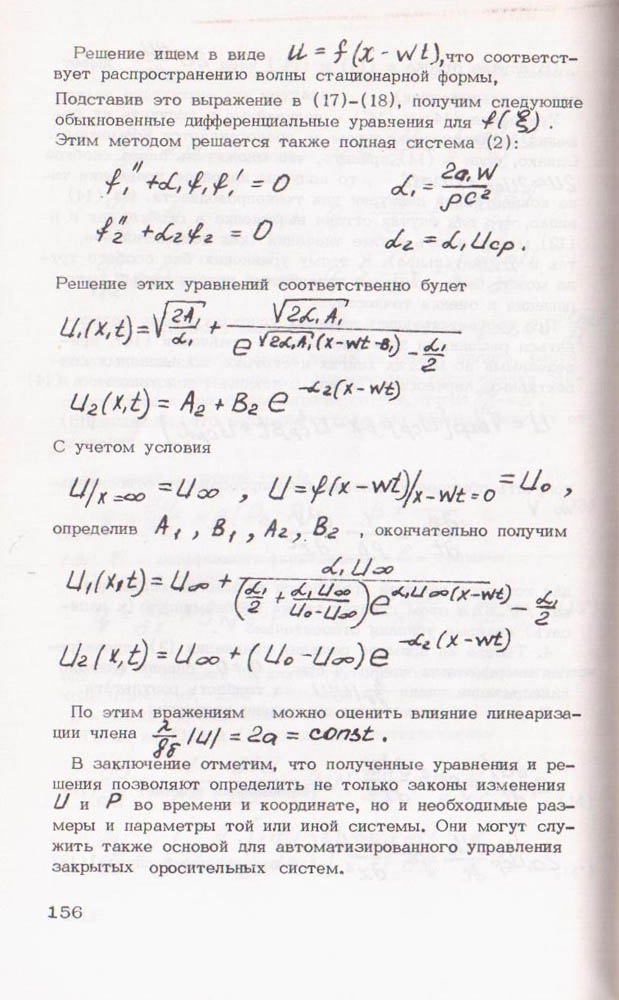 Решение ищем в виде U = f(x - wt), что соответст-
вует распространению волны стационарной формы,
Подставив это выражение в (17)-(18), получим следующие
обыкновенные дифференциальные уравнения для f(ξ) .
Этим методом решается также полная система (2):
f₁ + α₁ f₁ f₁' = 0    α₁ = 2a₁W / ρc²
f₂'' + α₂ f₂ = 0    α₂ = α₁ Uср.
Решение этих уравнений соответственно будет
U₁(x,t) = √(2A₁/α₁) + √(2α₁A₁) / (e^(√(2α₁A₁)(x-wt-B₁)) - α₁/2)
U₂(x,t) = A₂ + B₂ e^(-α₂(x-wt))
С учетом условия
U/x=∞ = U∞ , U = f(x-wt)/x-wt=0 = U₀ ,
определив A₁ , B₁ , A₂, B₂ , окончательно получим
U₁(x,t) = U∞ + α₁U∞ / ((α₁/2 + α₁U∞/(U₀-U∞)) e^(α₁U∞(x-wt)) - α₁/2)
U₂(x,t) = U∞ + (U₀ - U∞) e^(-α₂(x-wt))
По этим вражениям можно оценить влияние линеариза-
ции члена λ/8δ |U| = 2a = const .
В заключение отметим, что полученные уравнения и ре-
шения позволяют определить не только законы изменения
U и P во времени и координате, но и необходимые раз-
меры и параметры той или иной системы. Они могут слу-
жить также основой для автоматизированного управления
закрытых оросительных систем.
156